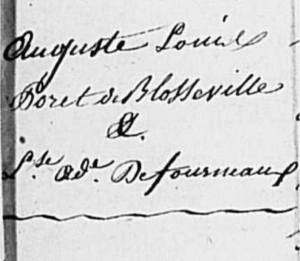 Auguste Louise
Poret de Blosseville
&.
L.se Ad.e Defourneaux